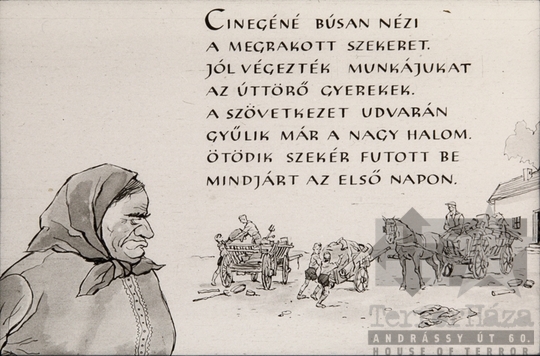 CINEGÉNÉ BÚSAN NÉZI
A MEGRAKOTT SZEKERET.
JÓL VÉGEZTÉK MUNKÁJUKAT
AZ ÚTTÖRŐ GYEREKEK.
A SZÖVETKEZET UDVARÁN
GYŰLIK MÁR A NAGY HALOM.
ÖTÖDIK SZEKÉR FUTOTT BE
MINDJÁRT AZ ELSŐ NAPON.
Terror Háza
ANDRÁSSY ÚT 60.
HOUSE OF TERROR